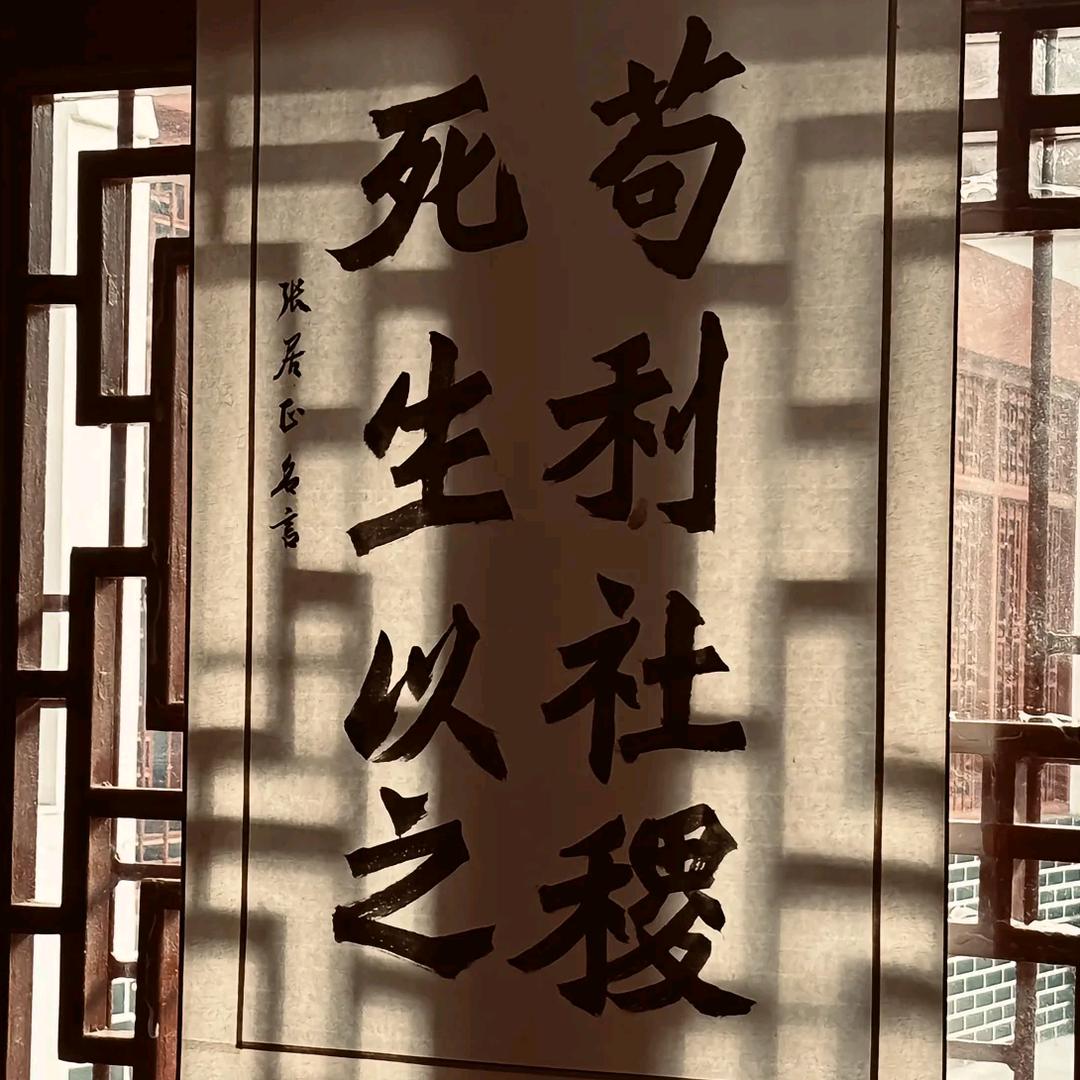 苟利社稷
死生以之
张居正名言